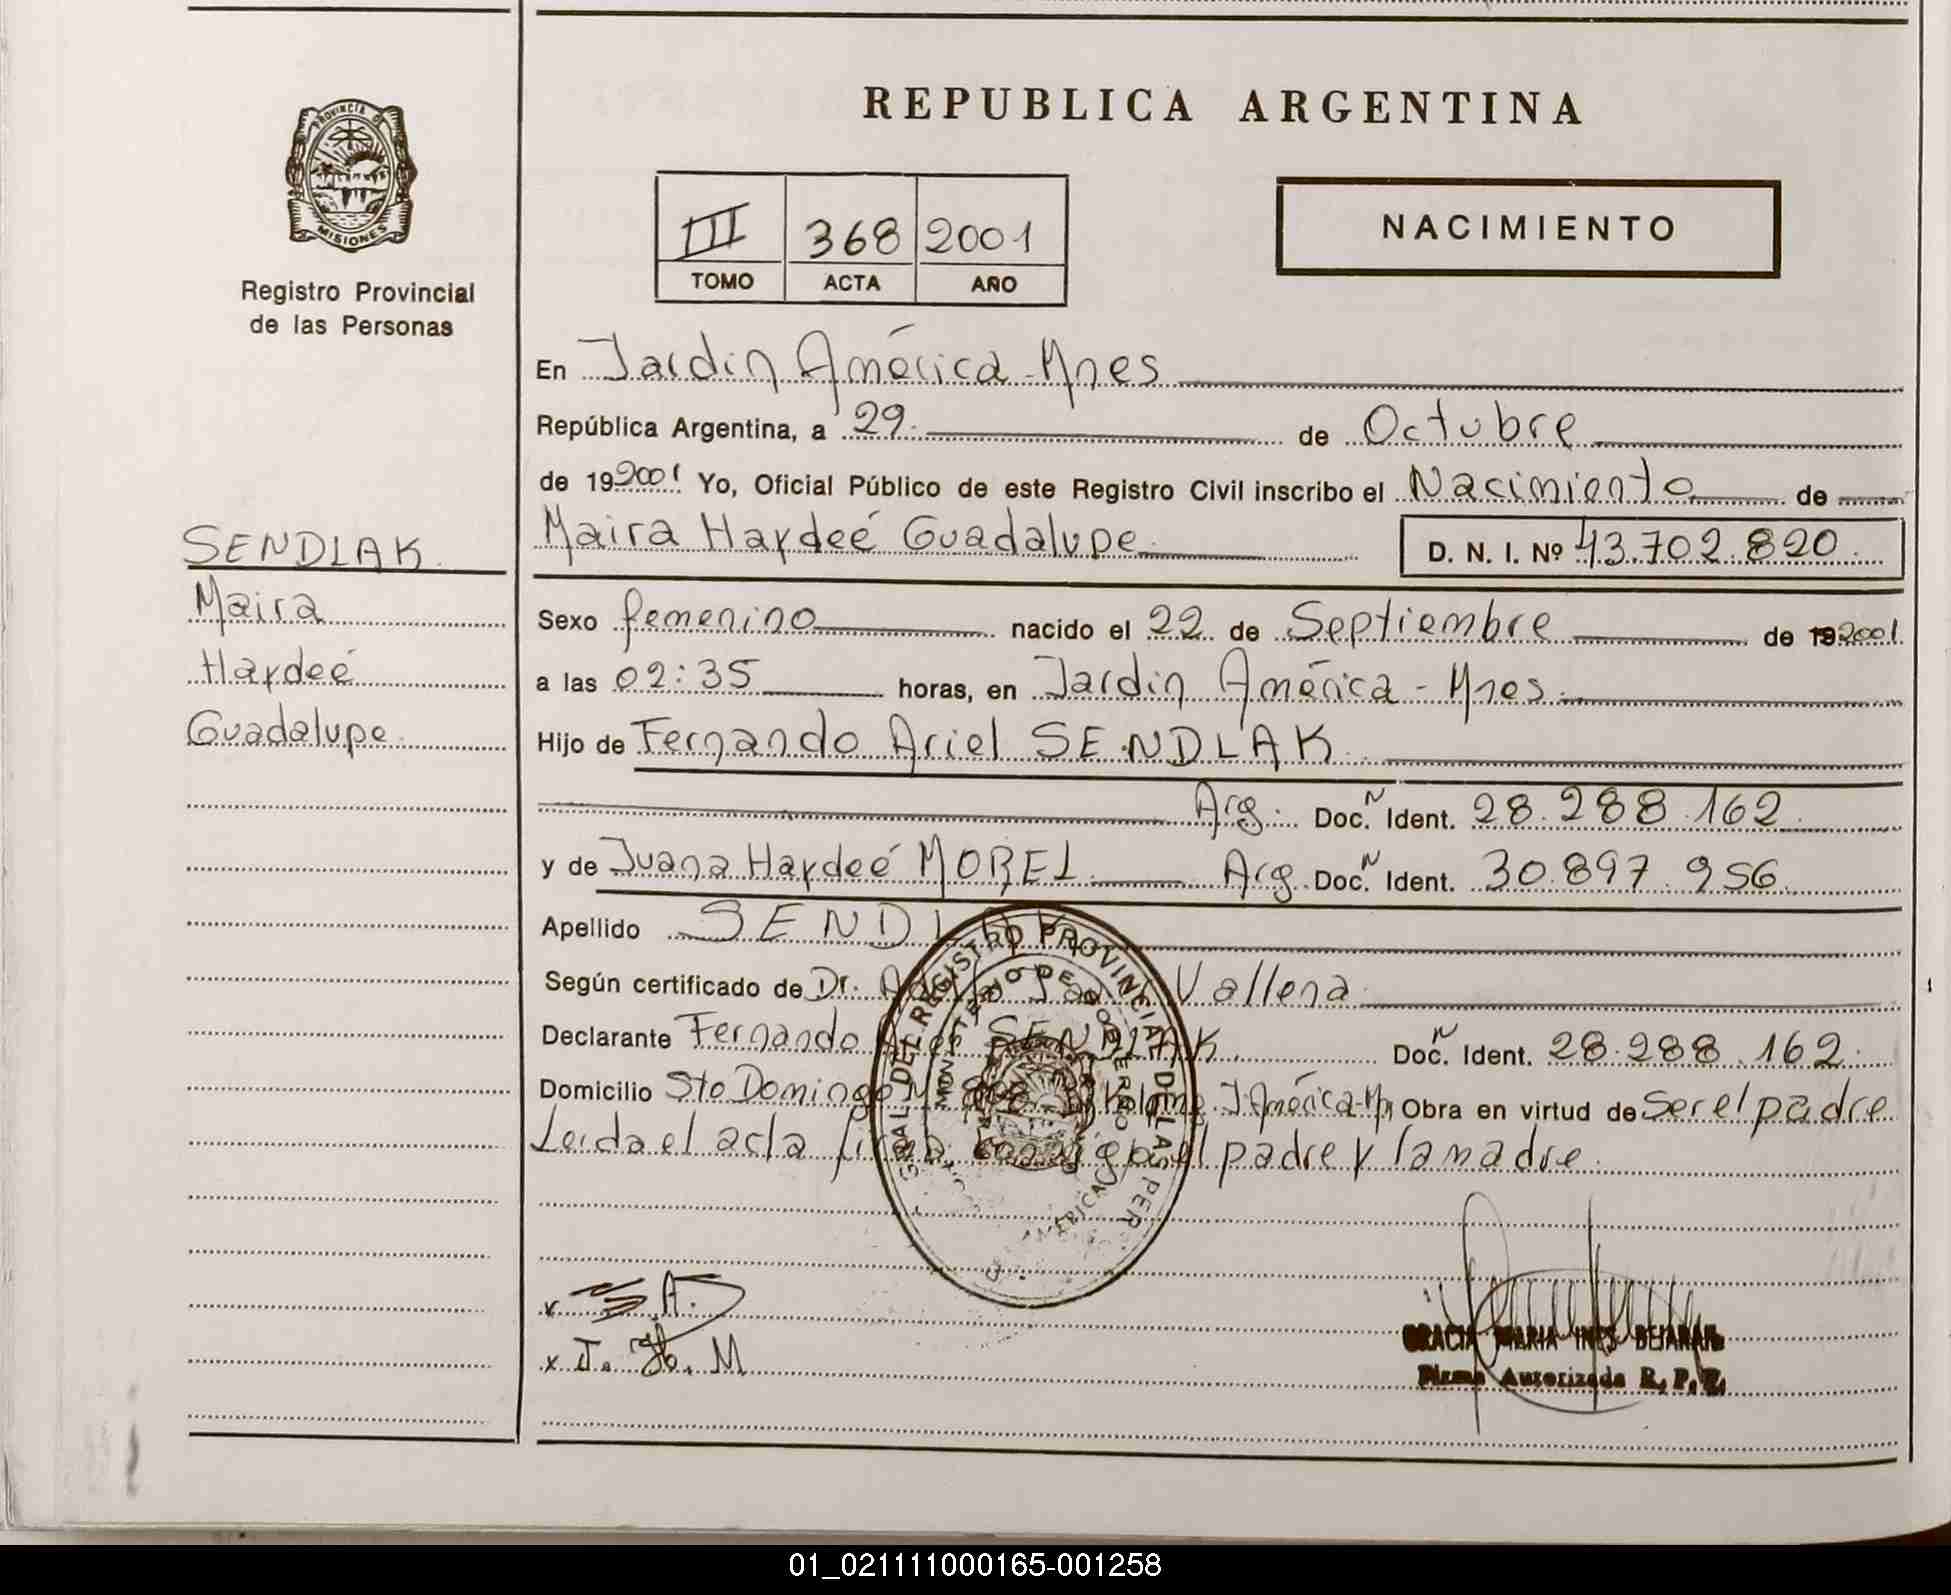 REPUBLICA ARGENTINA
PROVINCIA DE
MISIONES
Registro Provincial
de las Personas
III 368 2001
TOMO ACTA AÑO
NACIMIENTO
En Jardin América - Mnes
República Argentina, a 29 de Octubre
de 192001 Yo, Oficial Público de este Registro Civil inscribo el Nacimiento de
Maira Haydeé Guadalupe D. N. I. Nº 43.702.820
SENDLAK
Maira
Haydeé
Guadalupe
Sexo femenino nacido el 22 de Septiembre de 192001
a las 02:35 horas, en Jardin América - Mnes.
Hijo de Fernando Ariel SENDLAK
Arg. Doc. N Ident. 28.288.162
y de Juana Haydeé MOREL Arg. Doc. N Ident. 30.897.956
Apellido SENDLAK
Según certificado de Dr. Vallena
Declarante Fernando SENDLAK Doc. N Ident. 28.288.162
Domicilio Sto Domingo J. América-M, Obra en virtud de Ser el padre
Leida el acta firma el padre y la madre.
DEL REGISTRO PROVINCIAL DE LAS PER
MINISTERIO DE GOBIERNO
S.A.
x J. H. M
GRACIA MARIA INES BEJARAN
Firma Autorizada R. P. P.
01_021111000165-001258